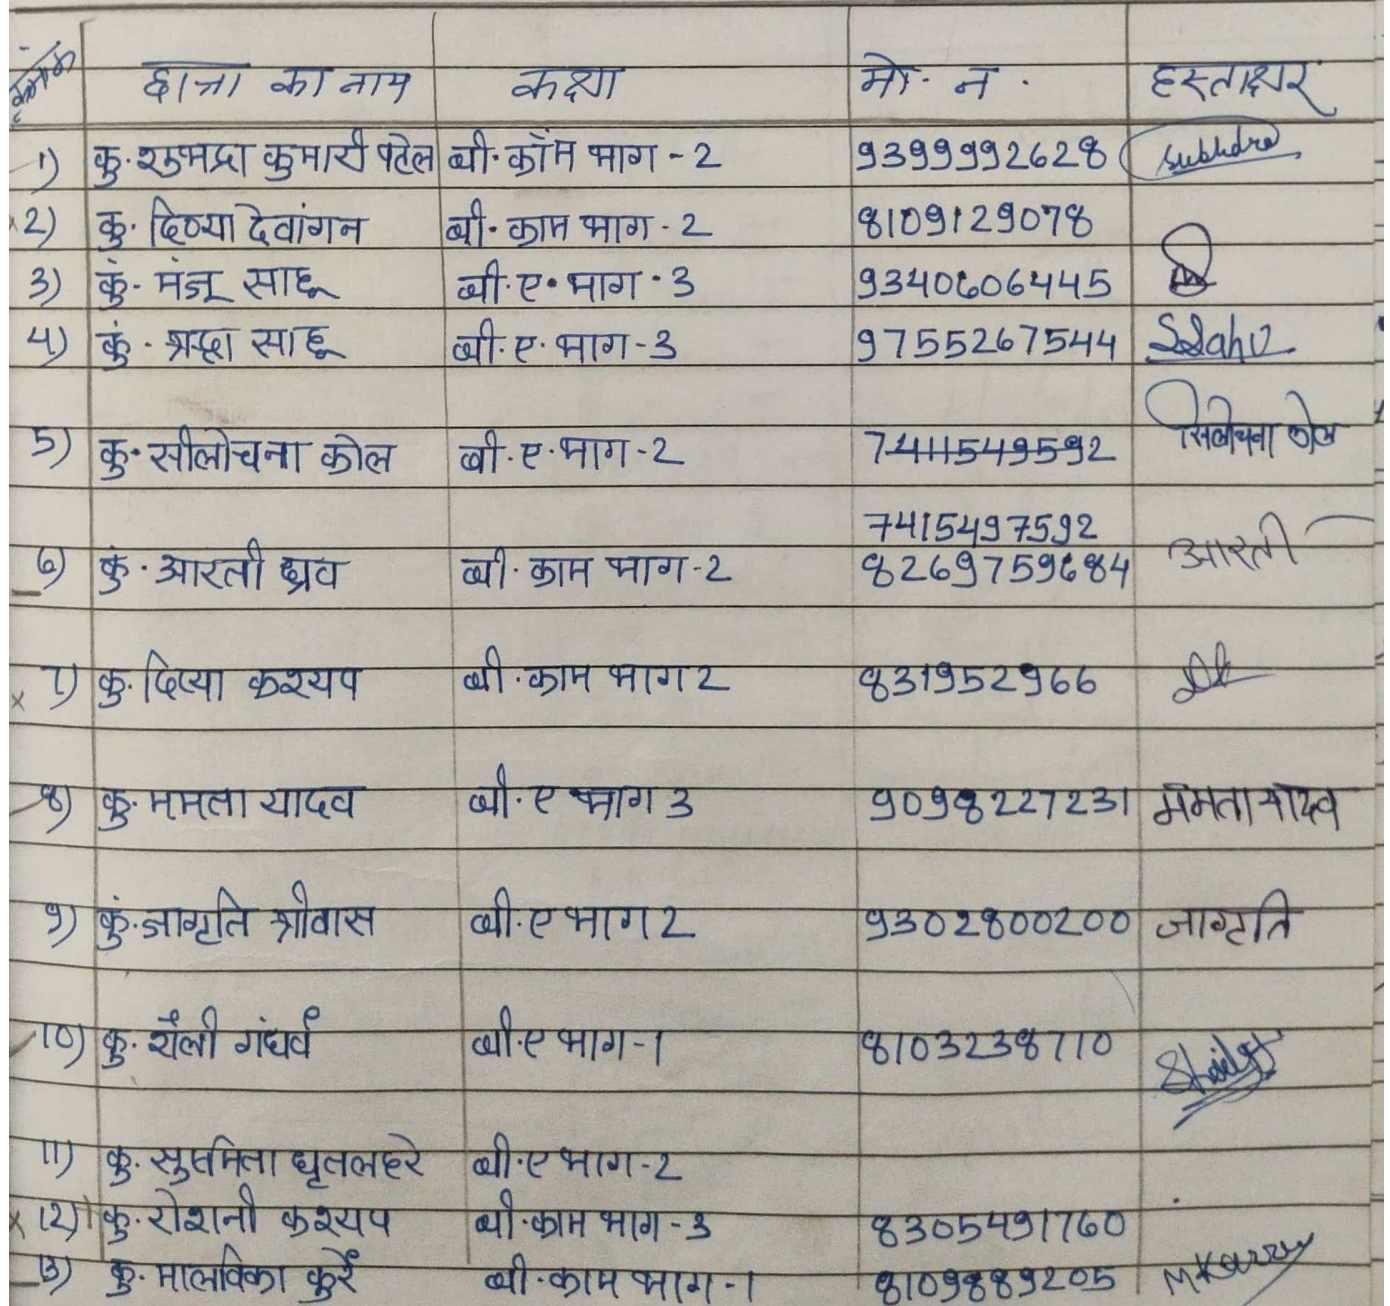 क्रमांक छात्रा का नाम कक्षा मो. न. हस्ताक्षर
1) कु. शुभद्रा कुमारी पटेल बी. कॉम भाग - 2 9399992628 Subhdra
2) कु. दिव्या देवांगन बी. काम भाग - 2 8109129078
3) कुं. मंजू साहू बी. ए. भाग - 3 9340606445
4) कुं. श्रद्धा साहू बी. ए. भाग - 3 9755267544 SSahu
5) कु. सीलोचना कोल बी. ए. भाग - 2 74115549592 सिलोचना कोल
7415497592
6) कुं. आरती ध्रव बी. काम भाग - 2 8269759684 आरती
7) कु. दिव्या कश्यप बी. काम भाग 2 831952966
8) कु. ममता यादव बी. ए भाग 3 9098227231 ममता यादव
9) कुं. जागृति श्रीवास बी. ए भाग 2 9302800200 जागृति
10) कु. शैली गंधर्व बी. ए भाग - 1 8103238710
11) कु. सुस्मिता धृतलहरे बी. ए भाग - 2
12) कु. रोशनी कश्यप बी. काम भाग - 3 8305491760
13) कु. मालविका कुर्रे बी. काम भाग - 1 8109889205